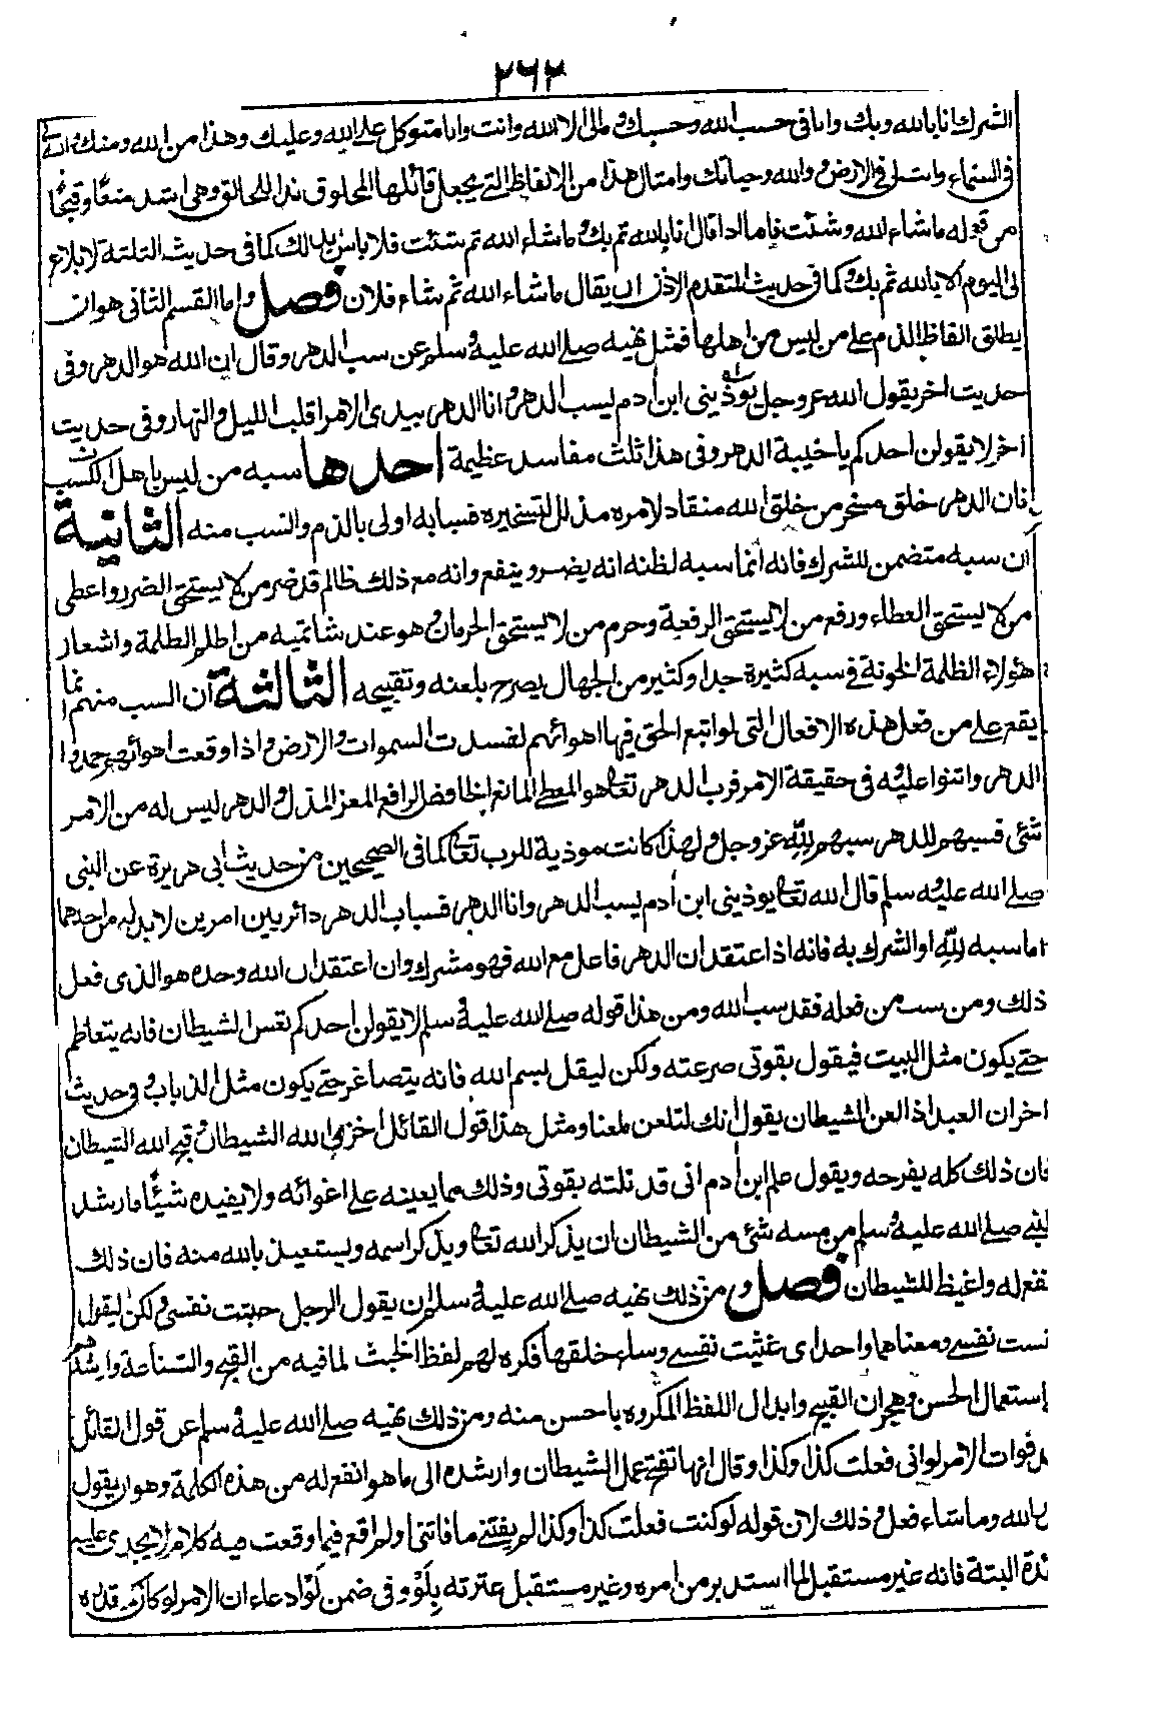 ٢٦٢
الشرك انا بالله وبك وانا فى حسب الله وحسبك ومالى الا الله وانت وانا متوكل على الله وعليك وهذا من الله ومنك والله لى
فى السماء وانت لى فى الارض والله وحياتك وامثال هذا من الالفاظ التى يجعل قائلها المخلوق ندا للخالق وهى اشد منعا وقبحا
من قوله ماشاء الله وشئت فاما اذا قال انا بالله ثم بك وماشاء الله ثم شئت فلا باس بذلك كما فى حديث الثلثة لا بلاغ
لى اليوم الا بالله ثم بك وكما فى حديث المتقدم الاذن ان يقال ماشاء الله ثم شاء فلان فصل واما القسم الثانى هو ان
يطلق الفاظ الذم على من ليس من اهلها فمثل نهيه صلى الله عليه وسلم عن سب الدهر وقال ان الله هو الدهر وفى
حديث اخر يقول الله عزوجل يوذينى ابن ادم ليسب الدهر وانا الدهر بيدى الامر اقلب الليل والنهار وفى حديث
اخر لا يقولن احدكم يا خيبة الدهر وفى هذا ثلث مفاسد عظيمة احدها سبه من ليس باهل السب
فان الدهر خلق مسخر من خلق الله منقاد لامره مذلل لتسخيره فسابه اولى بالذم والسب منه الثانية
ان سبه متضمن للشرك فانه انما سبه لظنه انه يضر وينفع وانه مع ذلك ظالم قد ضر من لا يستحق الضرر واعطى
من لا يستحق العطاء ورفع من لا يستحق الرفعة وحرم من لا يستحق الحرمان وهو عند شاتميه من اظلم الظلمة واشعار
هؤلاء الظلمة الخونة فى سبه كثيرة جدا وكثير من الجهال يصرح بلعنه وتقبيحه الثالثة ان السب منهم انما
يقع على من فعل هذه الافعال التى لو اتبع الحق فيها اهوائهم لفسدت السموات والارض واذا وقعت اهوائهم حمدوا
الدهر واثنوا عليه وفى حقيقة الامر فرب الدهر تعالى هو المعطى المانع الخافض الرافع المعز المذل والدهر ليس له من الامر
شئ فسبهم للدهر سبهم لله عزوجل ولهذا كانت موذية للرب تعالى كما فى الصحيحين من حديث ابى هريرة عن النبى
صلى الله عليه وسلم قال الله تعالى يوذينى ابن ادم يسب الدهر وانا الدهر فساب الدهر دائر بين امرين لابد له من احدهما
اما سبه لله او الشرك به فانه اذا اعتقد ان الدهر فاعل مع الله فهو مشرك وان اعتقد ان الله وحده هو الذى فعل
ذلك ومن سب من فعله فقد سب الله ومن هذا قوله صلى الله عليه وسلم لا يقولن احدكم تعس الشيطان فانه يتعاظم
حتى يكون مثل البيت فيقول بقوتى صرعته ولكن ليقل بسم الله فانه يتصاغر حتى يكون مثل الذباب وفى حديث
اخر ان العبد اذا لعن الشيطان يقول انك لتلعن ملعنا ومثل هذا قول القائل اخزى الله الشيطان وقبح الله الشيطان
فان ذلك كله يفرحه ويقول علم ابن ادم انى قد نلته بقوتى وذلك مما يعينه على اغوائه ولا يفيده شيئا فارشد
لنبى صلى الله عليه وسلم من مسه شئ من الشيطان ان يذكر الله تعالى ويذكر اسمه ويستعيذ بالله منه فان ذلك
نفع له واغيظ للشيطان فصل ومن ذلك نهيه صلى الله عليه وسلم ان يقول الرجل خبثت نفسى ولكن ليقول
نست نفسى ومعناهما واحد اى غثيت نفسى وساء خلقها فكره لهم لفظ الخبث لما فيه من القبح والشناعة وارشدهم
استعمال الحسن وهجران القبيح وابدال اللفظ المكروه باحسن منه ومن ذلك نهيه صلى الله عليه وسلم عن قول القائل
د فوات الامر لو انى فعلت كذا وكذا وقال انها تفتح عمل الشيطان وارشده الى ما هو انفع له من هذه الكلمة وهو ان يقول
الله وماشاء فعل وذلك لان قوله لو كنت فعلت كذا وكذا لم يفتنى ما فاتنى او لم اقع فيما وقعت فيه كلام لا يجدى عليه
ئدة البتة فانه غير مستقبل لما استدبر من امره وغير مستقبل عثرته بلو وفى ضمن لو ادعاء ان الامر لو كان قدره